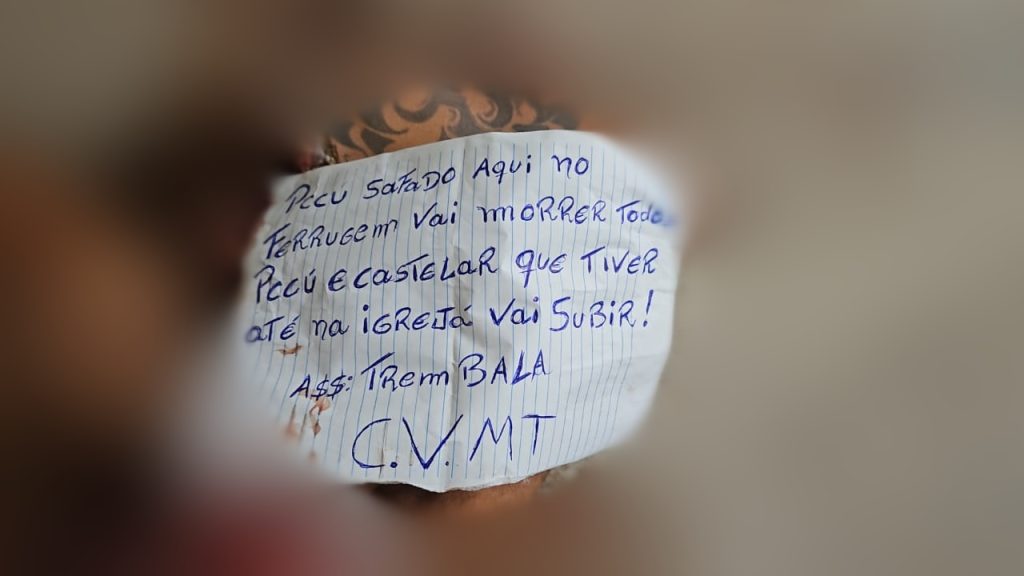 PCCU SAFADO AQui no
FERRUGEM Vai mORRER Todo
PCCÚ E CASTELAR QUE TIVER
ATÉ na iGREJÁ Vai SUBiR!
A$$: TRem BALA
C.V.MT